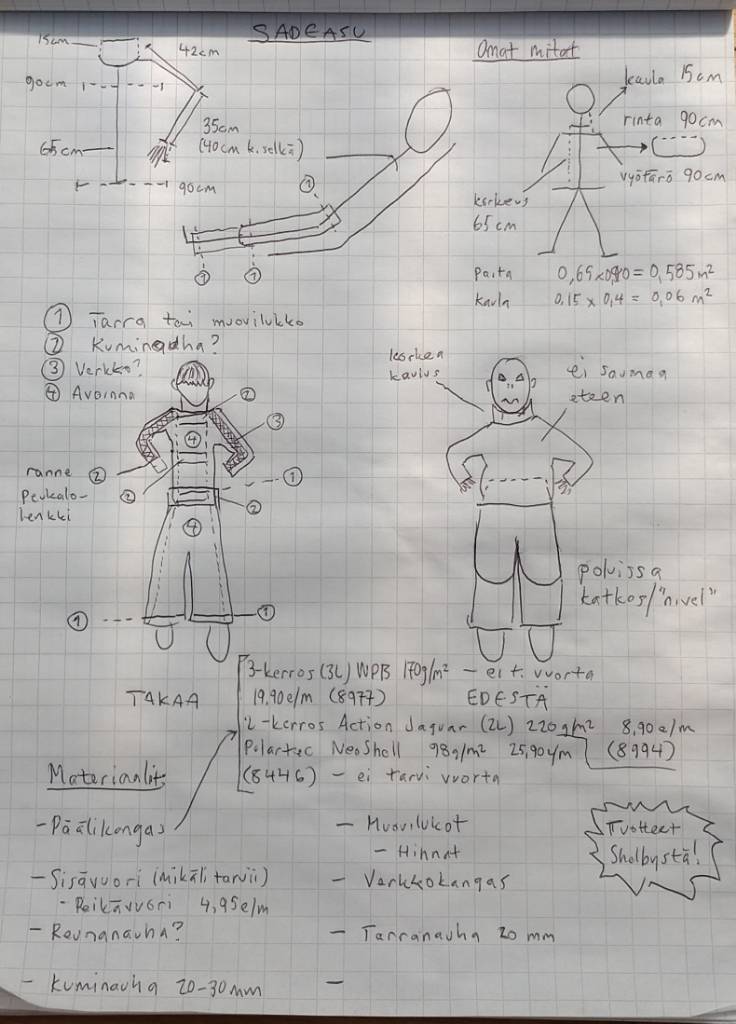 SADEASU
15cm
42cm
90cm
65cm
35cm
(40cm k. selkä)
90cm
1
1
1
Omat mitat
kaula 15cm
rinta 90cm
vyötärö 90cm
korkeus
65cm
paita 0,65x0,90 = 0,585m²
kaula 0,15 x 0,4 = 0,06 m²
1 Tarra tai muovilukko
2 Kuminauha?
3 Verkko?
4 Avoinna
2
3
4
2
2
ranne
peukalo-
lenkki
1
2
4
1
1
TAKAA
korkea
kaulus
ei saumaa
eteen
polvissa
katkos/"nivel"
EDESTÄ
3-kerros (3L) WPB 170g/m² - ei t. vuorta
19,90e/m (8977)
2-kerros Action Jaguar (2L) 220g/m² 8,90e/m
(8994)
Polartec NeoShell 98g/m² 25,90e/m
(8446) - ei tarvi vuorta
Materiaalit
- Päälikangas
- Sisävuori (mikäli tarvii)
- Reikävuori 4,95e/m
- Reunanauha?
- Kuminauha 20-30mm
- Muovilukot
- Hinnat
- Verkkokangas
- Tarranauha 20 mm
-
Tuotteet
Shelbystä!